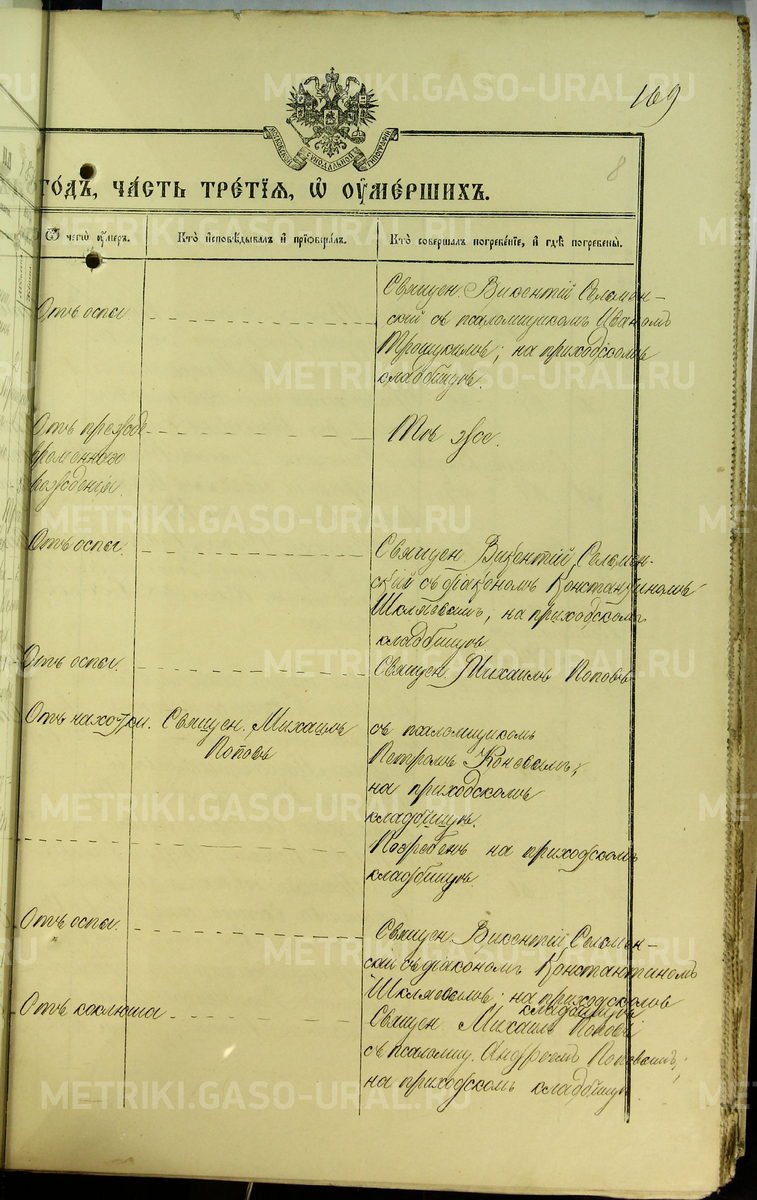 METRIKI.GASO-URAL.RU
169
МОСКОВСКОЙ СѴНОДАЛЬНОЙ ТИПОГРАФІИ
8
го́дъ, ча́сть тре́тїѧ, ѡ҆ ᲂу҆ме́ршихъ.
Ѿ чегѡ̀ ᲂу҆́меръ.
Кто̀ и҆сповѣ́дывалъ и҆ прїѡбща́лъ.
Кто̀ соверша́лъ погребе́нїе, и҆ гдѣ̀ погребены̀.
Отъ оспы
Священ. Викентій Сельмен-
скій съ псаломщикомъ Иваномъ
Трошкимъ; на приходскомъ
кладбищѣ.
Отъ преждевременного
рожденія
Тѣ же.
Отъ оспы.
Священ. Викентій Сельмен-
скій съ діакономъ Константиномъ
Шкляевымъ, на приходскомъ
кладбищѣ
Отъ оспы.
Священ. Михаилъ Поповъ
Отъ чахотки.
Священ. Михаилъ
Поповъ
съ псаломщикомъ
Петромъ Коневымъ,
на приходскомъ
кладбищѣ.
Погребенъ на приходскомъ
кладбищѣ
Отъ оспы.
Священ. Викентій Сельмен-
скій съ діакономъ Константиномъ
Шкляевымъ; на приходскомъ
кладбищѣ
Отъ коклюша
Священ. Михаилъ Поповъ
съ псаломщ. Андреемъ Поповымъ;
на приходскомъ кладбищѣ.